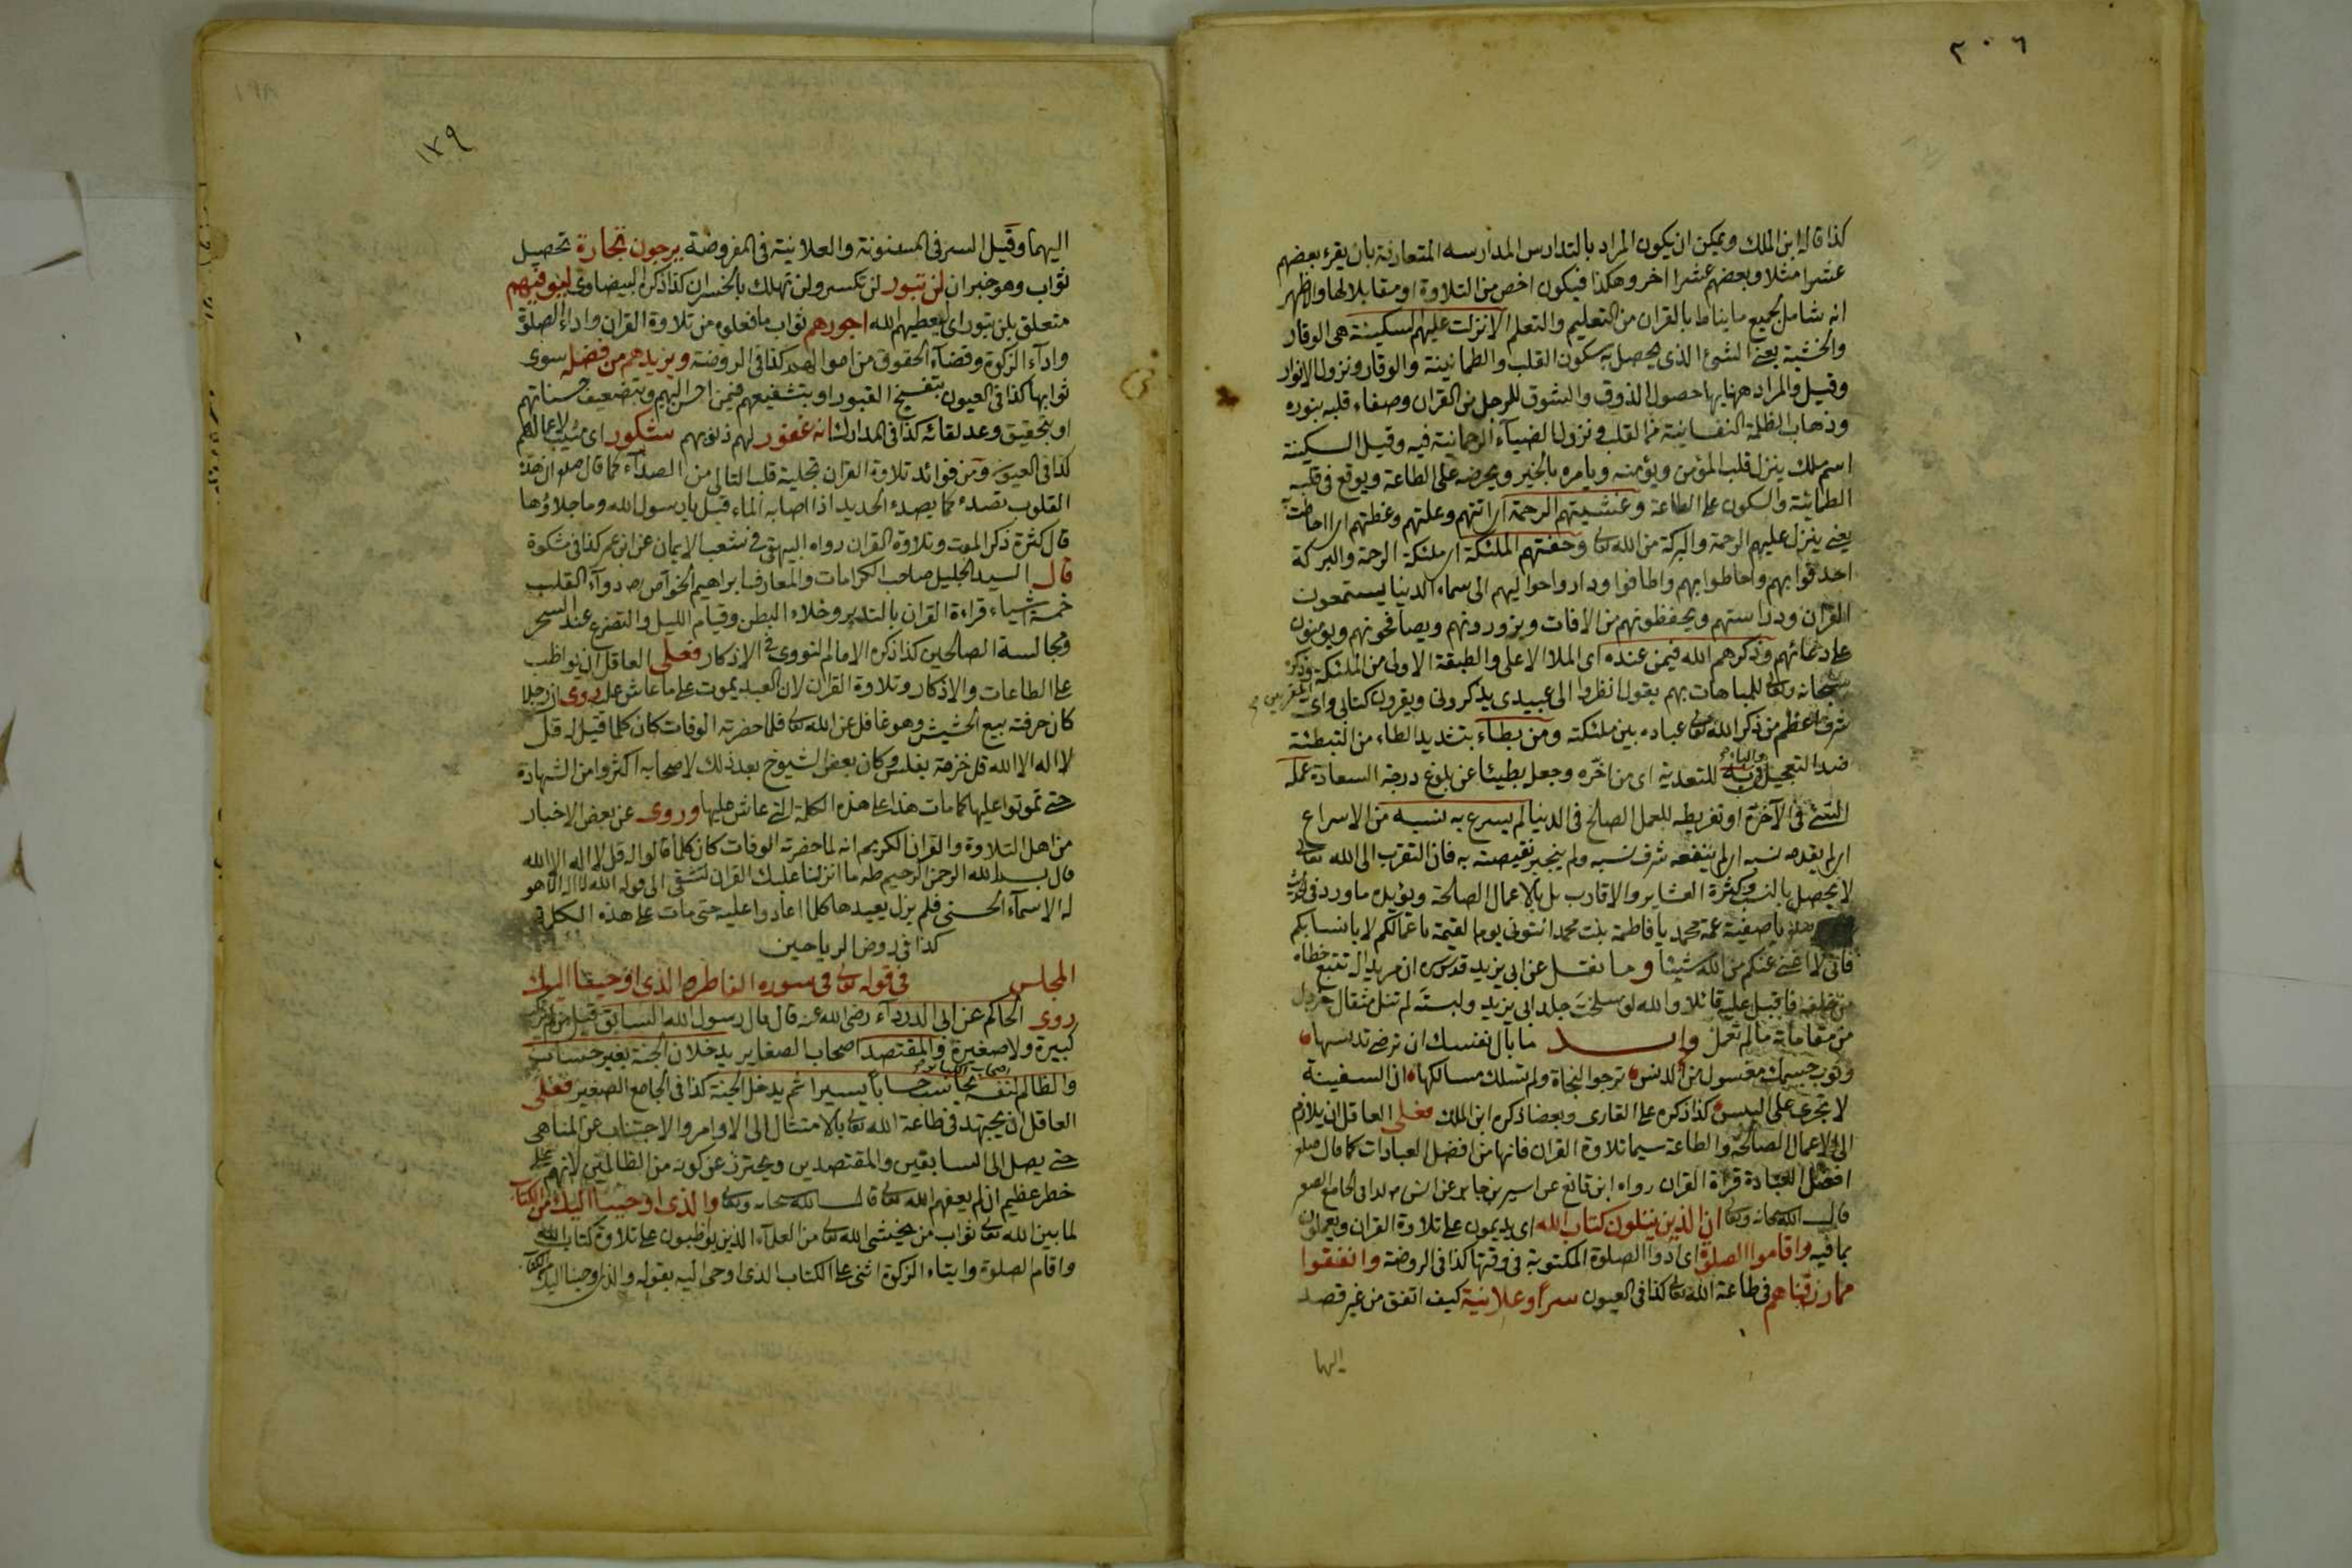 ٢٠٦
كذا قاله ابن الملك ويمكن ان يكون المراد بالتدارس المدارسه المتعارفة بان يقرء بعضهم
عشرا مثلا وبعضهم عشرا اخر وهكذا فيكون اخص من التلاوة او مقابلا لها والاظهر
انه شامل لجميع ما يناط بالقران من التعليم والتعلم الا نزلت عليهم السكينة هى الوقار
والخشية يعنى الشئ الذى يحصل به سكون القلب والطمانينة والوقار ونزول الانوار
وقيل والمراد ههنا بها حصول الذوق والشوق للرجل من القران وصفاء قلبه بنوره
وذهاب الظلمة النفسانية من القلب ونزول الضياء الرحمانية فيه وقيل السكينة
اسم ملك ينزل قلب المؤمن ويؤمنه ويامره بالخير ويحرضه على الطاعة ويوقع فى قلبه
الطمانينة والسكون على الطاعة وغشيتهم الرحمة اى اتتهم وعلتهم وغطتهم اى احاطت
يعنى ينزل عليهم الرحمة والبركة من الله تعالى وحفتهم الملئكة اى ملئكة الرحمة والبركة
احدقوا بهم واحاطوا بهم واطافوا وداروا حواليهم الى سماء الدنيا يستمعون
القران ودراستهم ويحفظونهم من الافات ويزورونهم ويصافحونهم ويؤمنون
على دعائهم وذكرهم الله فيمن عنده اى الملا الاعلى والطبقة الاولى من الملئكة وذكره
سبحانه وتعالى للمباهات بهم يقول انظروا الى عبيدى يذكرونى ويقرون كتابى واى
المقربين
شرف اعظم من ذكر الله تعالى عباده بين ملئكته ومن بطاء بتشديد الطاء من التبطئة
ضد التعجيل والباء فى به للتعدية اى من اخره وجعل بطيئا عن بلوغ درجة السعادة عمله
السئ فى الآخرة او تفريطه للعمل الصالح فى الدنيا لم يسرع به نسبه من الاسراع
اى لم يقدمه نسبه اى لم ينفعه شرف نسبه ولم ينجبر نقيصته به فان التقرب الى الله تعالى
لا يحصل بالنسب وكثرة العشاير والاقارب بل بالاعمال الصالحة ويؤيده ما ورد فى الحديث
يا صفية عمة محمد يا فاطمة بنت محمد ائتونى يوم القيمة باعمالكم لا بانسابكم
فانى لا اغنى عنكم من الله شيئا وما نقل عن ابى يزيد قدس سره ان مريدا له تتبع خطاه
من خلفه فاقبل عليه قائلا والله لو سلخت جلد ابى يزيد ولبسته لم تنل مثقال خردل
من مقاماته ما لم تعمل وانشد ما بال نفسك ان ترضى تدنسها
وثوب جسمك مغسول من الدنس ترجوا النجاة ولم تسلك مسالكها ان السفينة
لا تجرى على اليبس كذا ذكره على القارى وبعضا ذكره ابن الملك فعلى العاقل ان يلازم
الى الاعمال الصالحة والطاعة سيما تلاوة القران فانها من افضل العبادات كما قال صلعم
افضل العبادة قراءة القران رواه ابن قانع عن اسير بن جابر عن انس كذا فى الجامع الصغير
قال الله سبحانه وتعالى ان الذين يتلون كتاب الله اى يديمون على تلاوة القران ويعملون
بما فيه واقاموا الصلوة اى ادوا الصلوة المكتوبة فى وقتها كذا فى الروضة وانفقوا
مما رزقناهم فى طاعة الله تعالى كذا فى العيون سرا وعلانية كيف اتفق من غير قصد
اليهما
١٩٨
١٣٩
اليهما وقيل السر فى المسنونة والعلانية فى المفروضة يرجون تجارة تحصيل
ثواب وهو خبر ان لن تبور لن تكسد ولن تهلك بالخسران كذا ذكره البيضاوى ليوفيهم
متعلق بلن تبور اى ليعطيهم الله اجورهم ثواب ما فعلوه من تلاوة القران واداء الصلوة
واداء الزكوة وقضاء الحقوق من اموالهم كذا فى الروضة ويزيدهم من فضله سوى
ثوابها كذا فى العيون بتفسيح القبور او بتشفيعهم فيمن احسن اليهم وبتضعيف حسناتهم
او بتحقيق وعد لقائه كذا فى المدارك انه غفور لهم ذنوبهم شكور اى مثيب لاعمالهم
كذا فى العيون ومن فوائد تلاوة القران تجلية قلب التالى من الصداء كما قال صلعم ان هذه
القلوب تصدء كما يصدء الحديد اذا اصابه الماء قيل يا رسول الله وما جلاؤها
قال كثرة ذكر الموت وتلاوة القران رواه البيهقى فى شعب الايمان عن ابن عمر كذا فى مشكوة
قال السيد الجليل صاحب الكرامات والمعارف ابراهيم الخواص رض دواء القلب
خمسة اشياء قراءة القران بالتدبر وخلاء البطن وقيام الليل والتضرع عند السحر
ومجالسة الصالحين كذا ذكره الامام النووى فى الاذكار فعلى العاقل ان يواظب
على الطاعات والاذكار وتلاوة القران لان العبد يموت على ما عاش عليه روى ان رجلا
كان حرفته بيع الحشيش وهو غافل عن الله تعالى فلما حضرته الوفات كان كلما قيل له قل
لا اله الا الله قل حزمة بفلس وكان بعض الشيوخ بعد ذلك لاصحابه اكثروا من الشهادة
حتى تموتوا عليها كما مات هذا على هذه الكلمة التى عاش عليها وروى عن بعض الاخيار
من اهل التلاوة والقران الكريم انه لما حضرته الوفات كان كلما قالوا له قل لا اله الا الله
قال بسم الله الرحمن الرحيم طه ما انزلنا عليك القران لتشقى الى قوله الله لا اله الا هو
له الاسماء الحسنى فلم يزل يعيدها كلما اعادوا عليه حتى مات على هذه الكلمة
كذا فى روض الرياحين
المجلس فى قوله تعالى فى سورة الفاطر والذى اوحينا اليك
روى الحاكم عن ابى الدرداء رضى الله عنه قال قال رسول الله السابق
كبيرة ولا صغيرة والمقتصد اصحاب الصغاير يدخلان الجنة بغير حساب
اصحاب الكبائر
والظالم لنفسه يحاسب حسابا يسيرا ثم يدخل الجنة كذا فى الجامع الصغير فعلى
العاقل ان يجتهد فى طاعة الله تعالى بالامتثال الى الاوامر والاجتناب عن المناهى
حتى يصل الى السابقين والمقتصدين ويحترز عن كونه من الظالمين لانهم على
خطر عظيم ان لم يعفهم الله تعالى قال الله سبحانه وتعالى والذى اوحينا اليك من الكتاب
لما بين الله تعالى ثواب من يخشى الله تعالى من العلماء الذين يواظبون على تلاوة كتاب الله
واقام الصلوة وايتاء الزكوة اثنى على الكتاب الذى اوحى اليه بقوله والذى اوحينا اليك من الكتاب